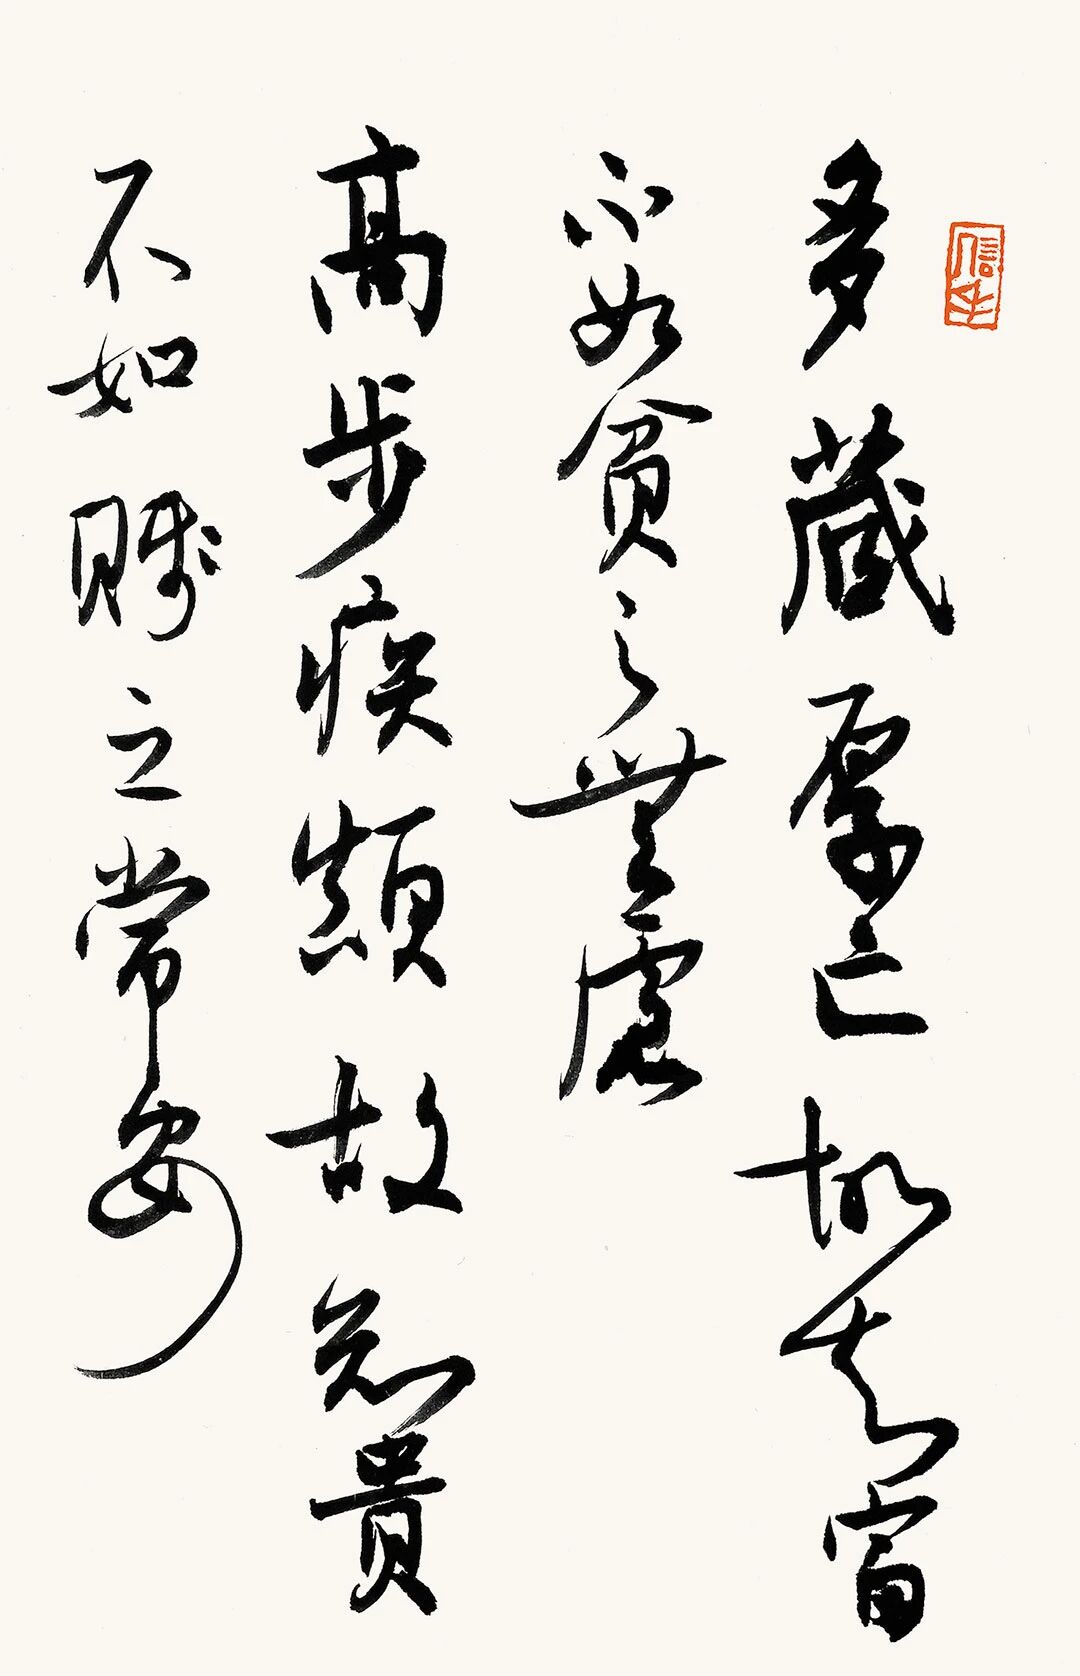 多藏厚亡故知富
不如貧之無慮
高步疾顛故知貴
不如賤之常安